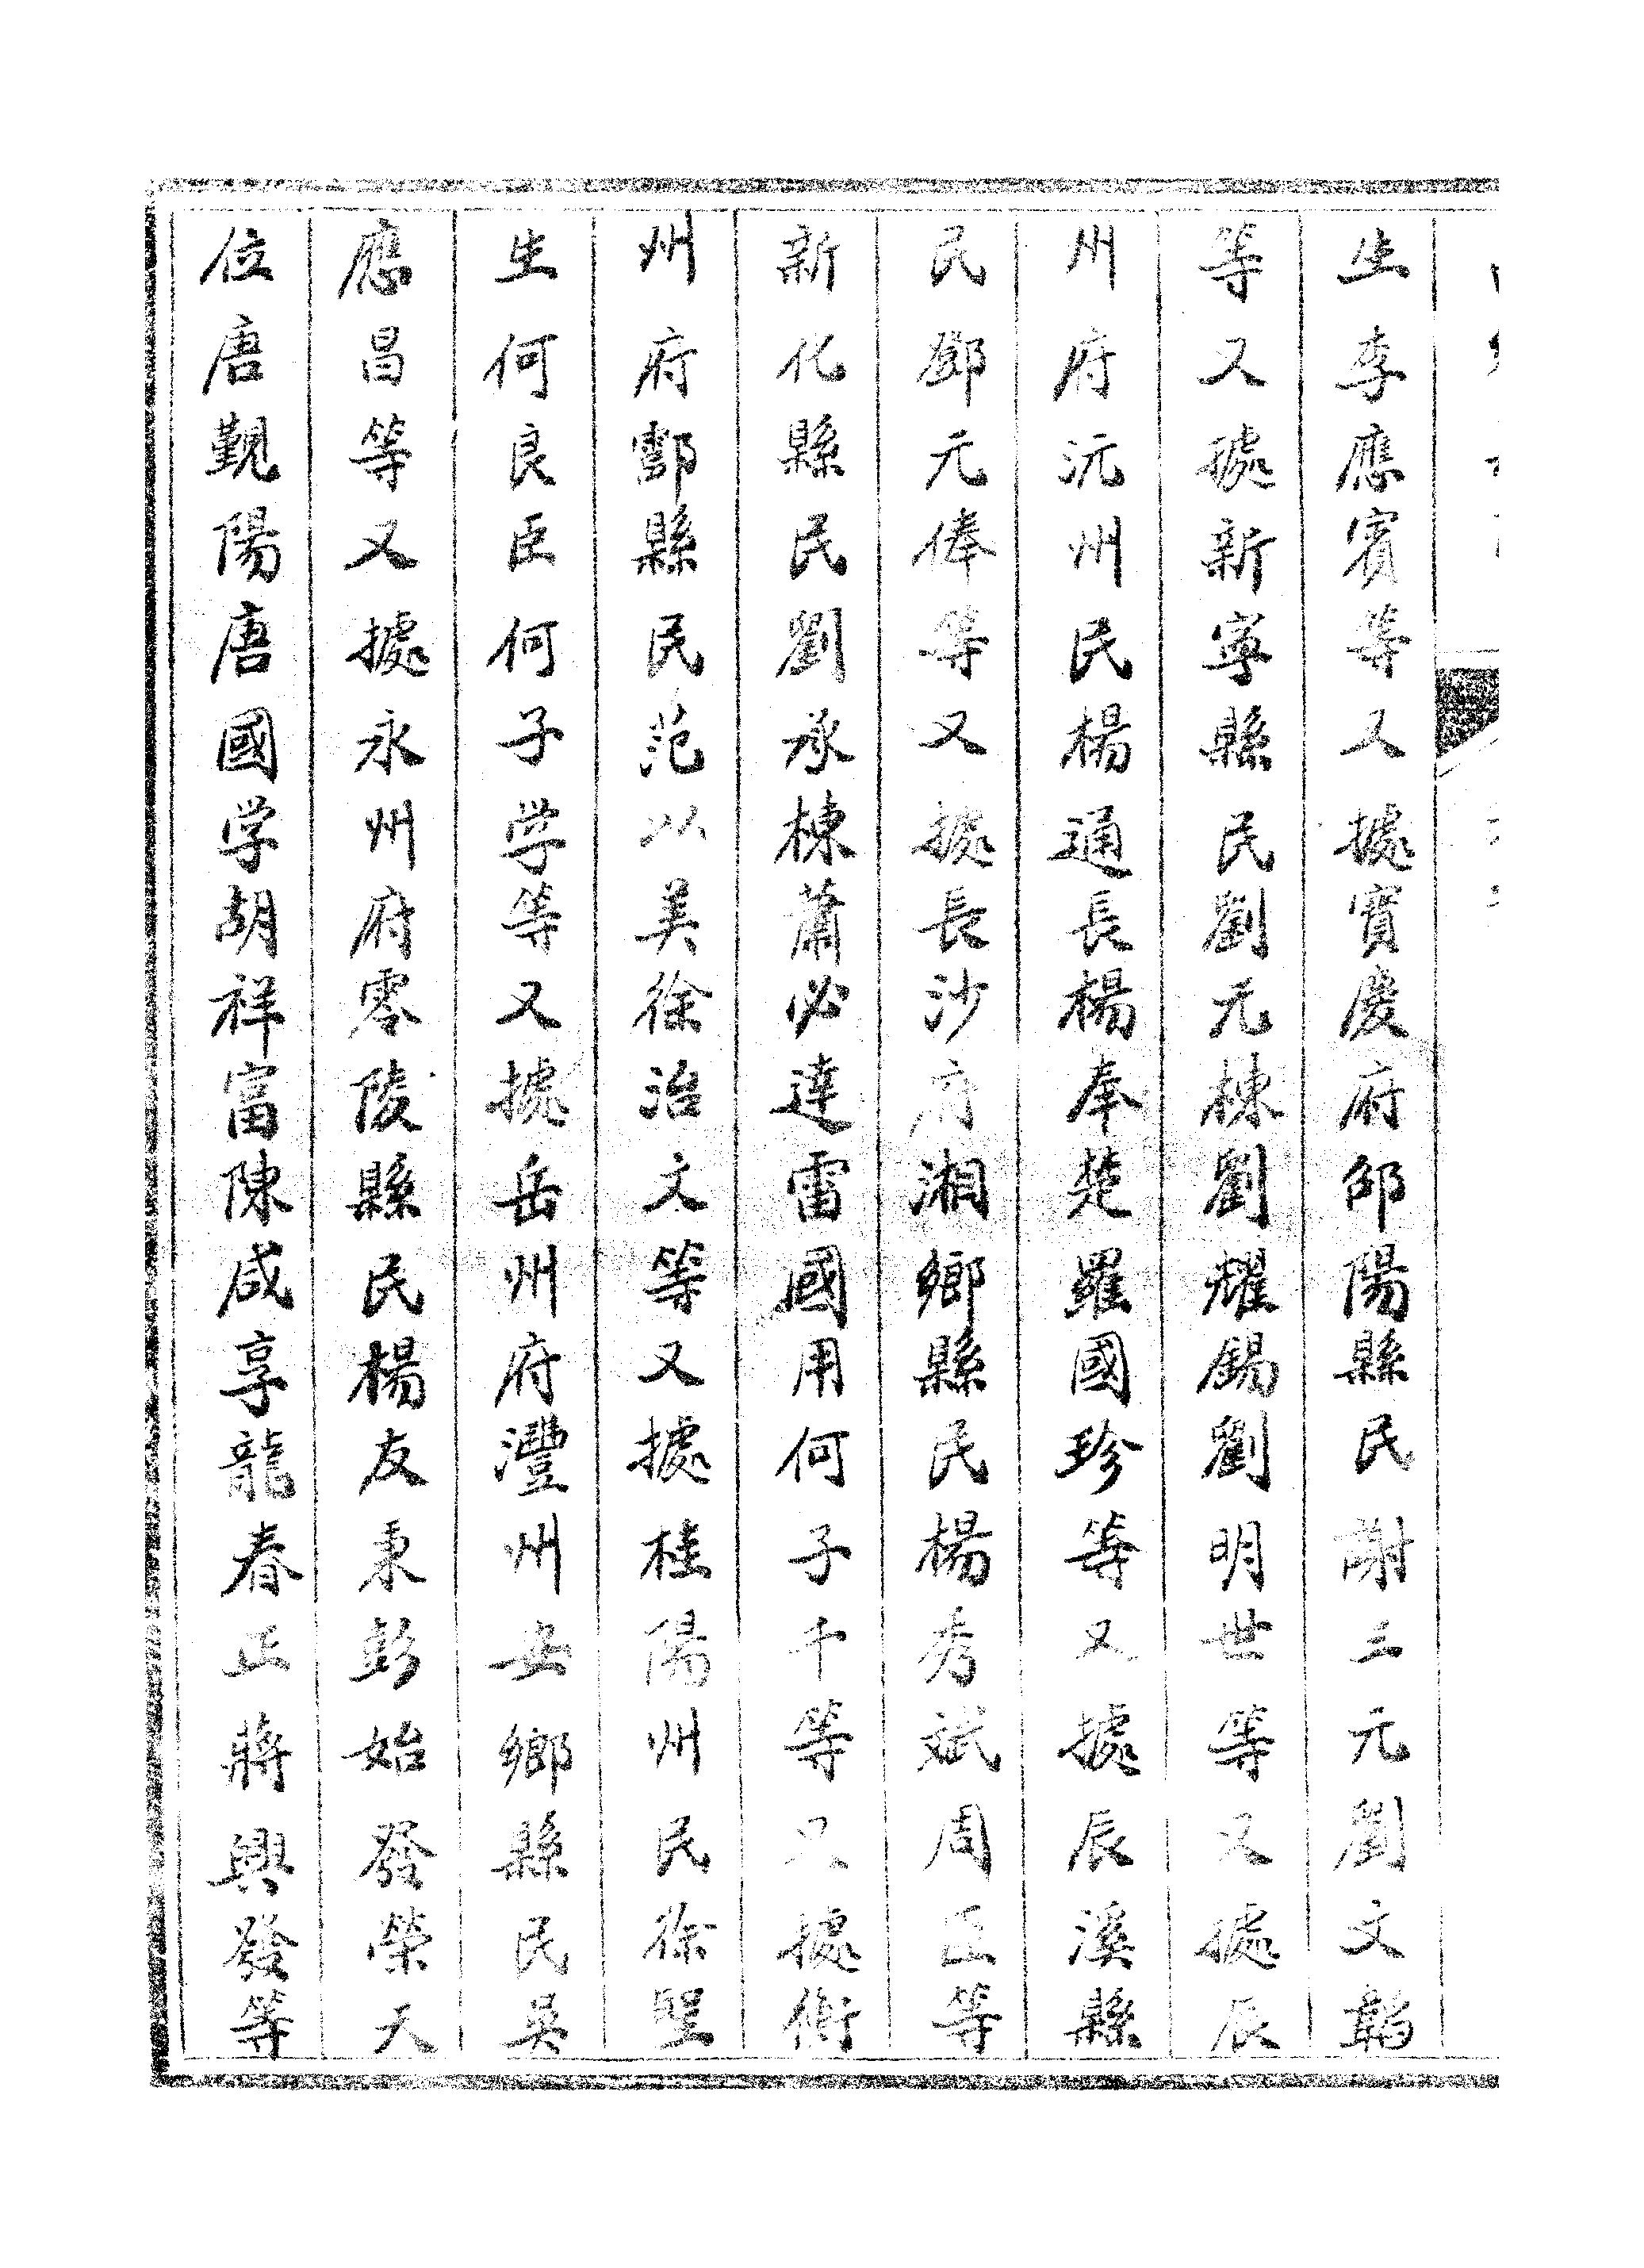 生李應賓等又據寶慶府邵陽縣民謝三元劉文韜
等又據新寧縣民劉元棟劉耀錫劉明世等又據辰
州府沅州民楊通長楊奉楚羅國珍等又據辰溪縣
民鄧元俸等又據長沙府湘鄉縣民楊秀斌周匡等
新化縣民劉承棟蕭必達雷國用何子千等又據衡
州府酃縣民范以美徐治文等又據桂陽州民徐聖
生何良臣何子学等又據岳州府灃州安鄉縣民吳
應昌等又據永州府零陵縣民楊友秉彭始發榮天
位唐觐陽唐國学胡祥富陳咸享龍春正蔣興發等